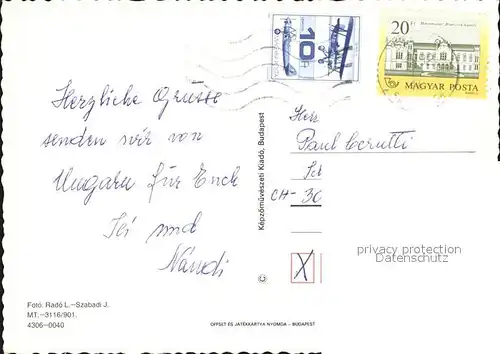 20 Ft
10
MAGYAR POSTA
Herzliche Grüsse
senden wir von
Ungarn für Euch
und
Nándi
Herr
Paul Cerutti
CH-36
X
Képzőművészeti Kiadó, Budapest
©
privacy protection
Datenschutz
Fotó: Radó L.–Szabadi J.
MT.–3116/901.
4306–0040
OFFSET ÉS JÁTÉKKÁRTYA NYOMDA – BUDAPEST